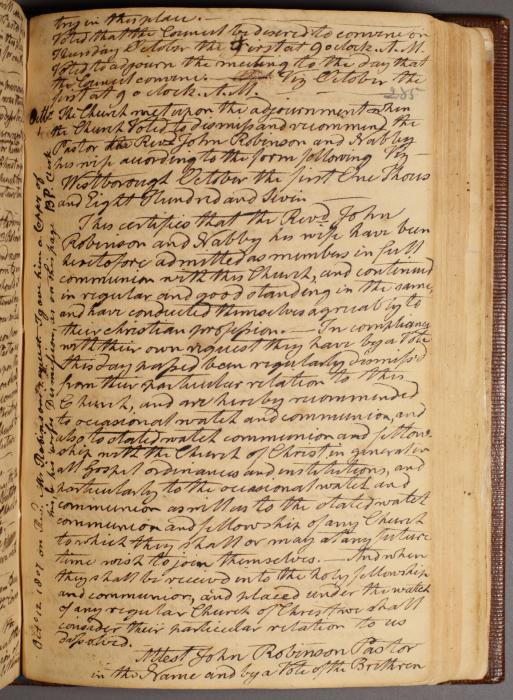 try in this place. —
Voted that the Council be desired to convene on
Thursday October the first at 9 oclock A.M.
Voted to adjourn the meeting to the day that
the Council convene. — Viz October the
first at 9 oclock A.M.
285
The Church met upon the adjournment when
the Church Voted to dismiss and recommend the
Pastor the Revd John Robinson and Nabby
his wife according to the form following Viz
Westborough October the first One Thous
and Eight Hundred and Seven
This certifies that the Revd John
Robinson and Nabby his wife have been
heretofore admitted as members in full
communion with this Church, and continued
in regular and good standing in the same,
and have conducted themselves agreeably to
their christian profession. — In compliance
with their own request they have by a Vote
this day passed been regularly dismissd
from their particular relation to this
Church, and are hereby recommended
to occasional watch and communion, and
also to stated watch communion and fellow-
ship with the Church of Christ in general in
all Gospel ordinances and institutions, and
particularly to the occasional watch and
communion as well as to the stated watch
communion and fellowship of any Church
to which they shall or may at any future
time wish to join themselves. — And when
they shall be received into the holy fellowship
and communion, and placed under the watch
of any regular Church of Christ we shall
consider their particular relation to us
dissolved.
Attest John Robinson Pastor
in the Name and by a Vote of the Brethren
Oct 12 1807 on Revd Mr Robinsons request I gave him a Copy of
his & his wifes Dismission as on this page BP. Clerk